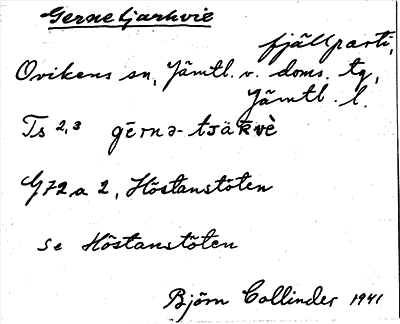 Gernetjarkvie
fjällparti,
Ovikens sn, Jämtl. v. doms. tg,
Jämtl. l.
Ts 2,3 gērnə-tsäkvè
G72a 2, Höstanstöten
se Höstanstöten
Björn Collinder 1941